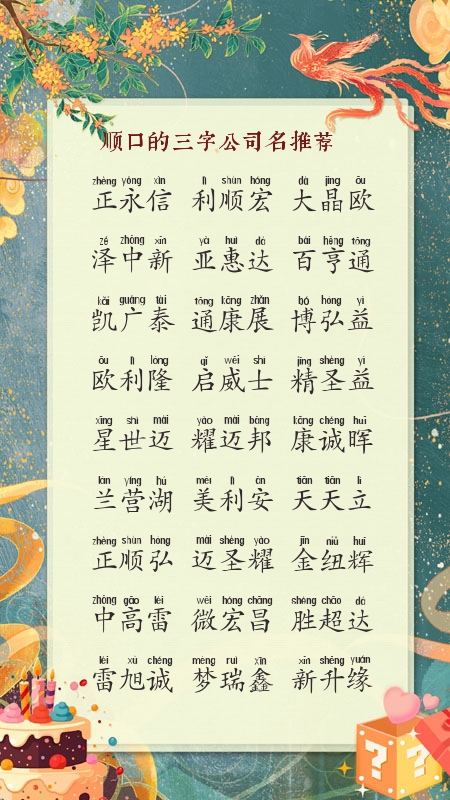 顺口的三字公司名推荐
zhèng yǒng xìn lì shùn hóng dà jīng ōu
正永信 利顺宏 大晶欧
zé zhōng xīn yà huì dá bǎi hēng tōng
泽中新 亚惠达 百亨通
kǎi guǎng tài tōng kāng zhǎn bó hóng yì
凯广泰 通康展 博弘益
ōu lì lóng qǐ wēi shì jīng shèng yì
欧利隆 启威士 精圣益
xīng shì mài yào mài bāng kāng chéng huī
星世迈 耀迈邦 康诚晖
lán yíng hú měi lì ān tiān tiān lì
兰营湖 美利安 天天立
zhèng shùn hóng mài shèng yào jīn niǔ huī
正顺弘 迈圣耀 金纽辉
zhōng gāo léi wēi hóng chāng shèng chāo dá
中高雷 微宏昌 胜超达
léi xù chéng mèng ruì xīn xīn shēng yuán
雷旭诚 梦瑞鑫 新升缘
? ?